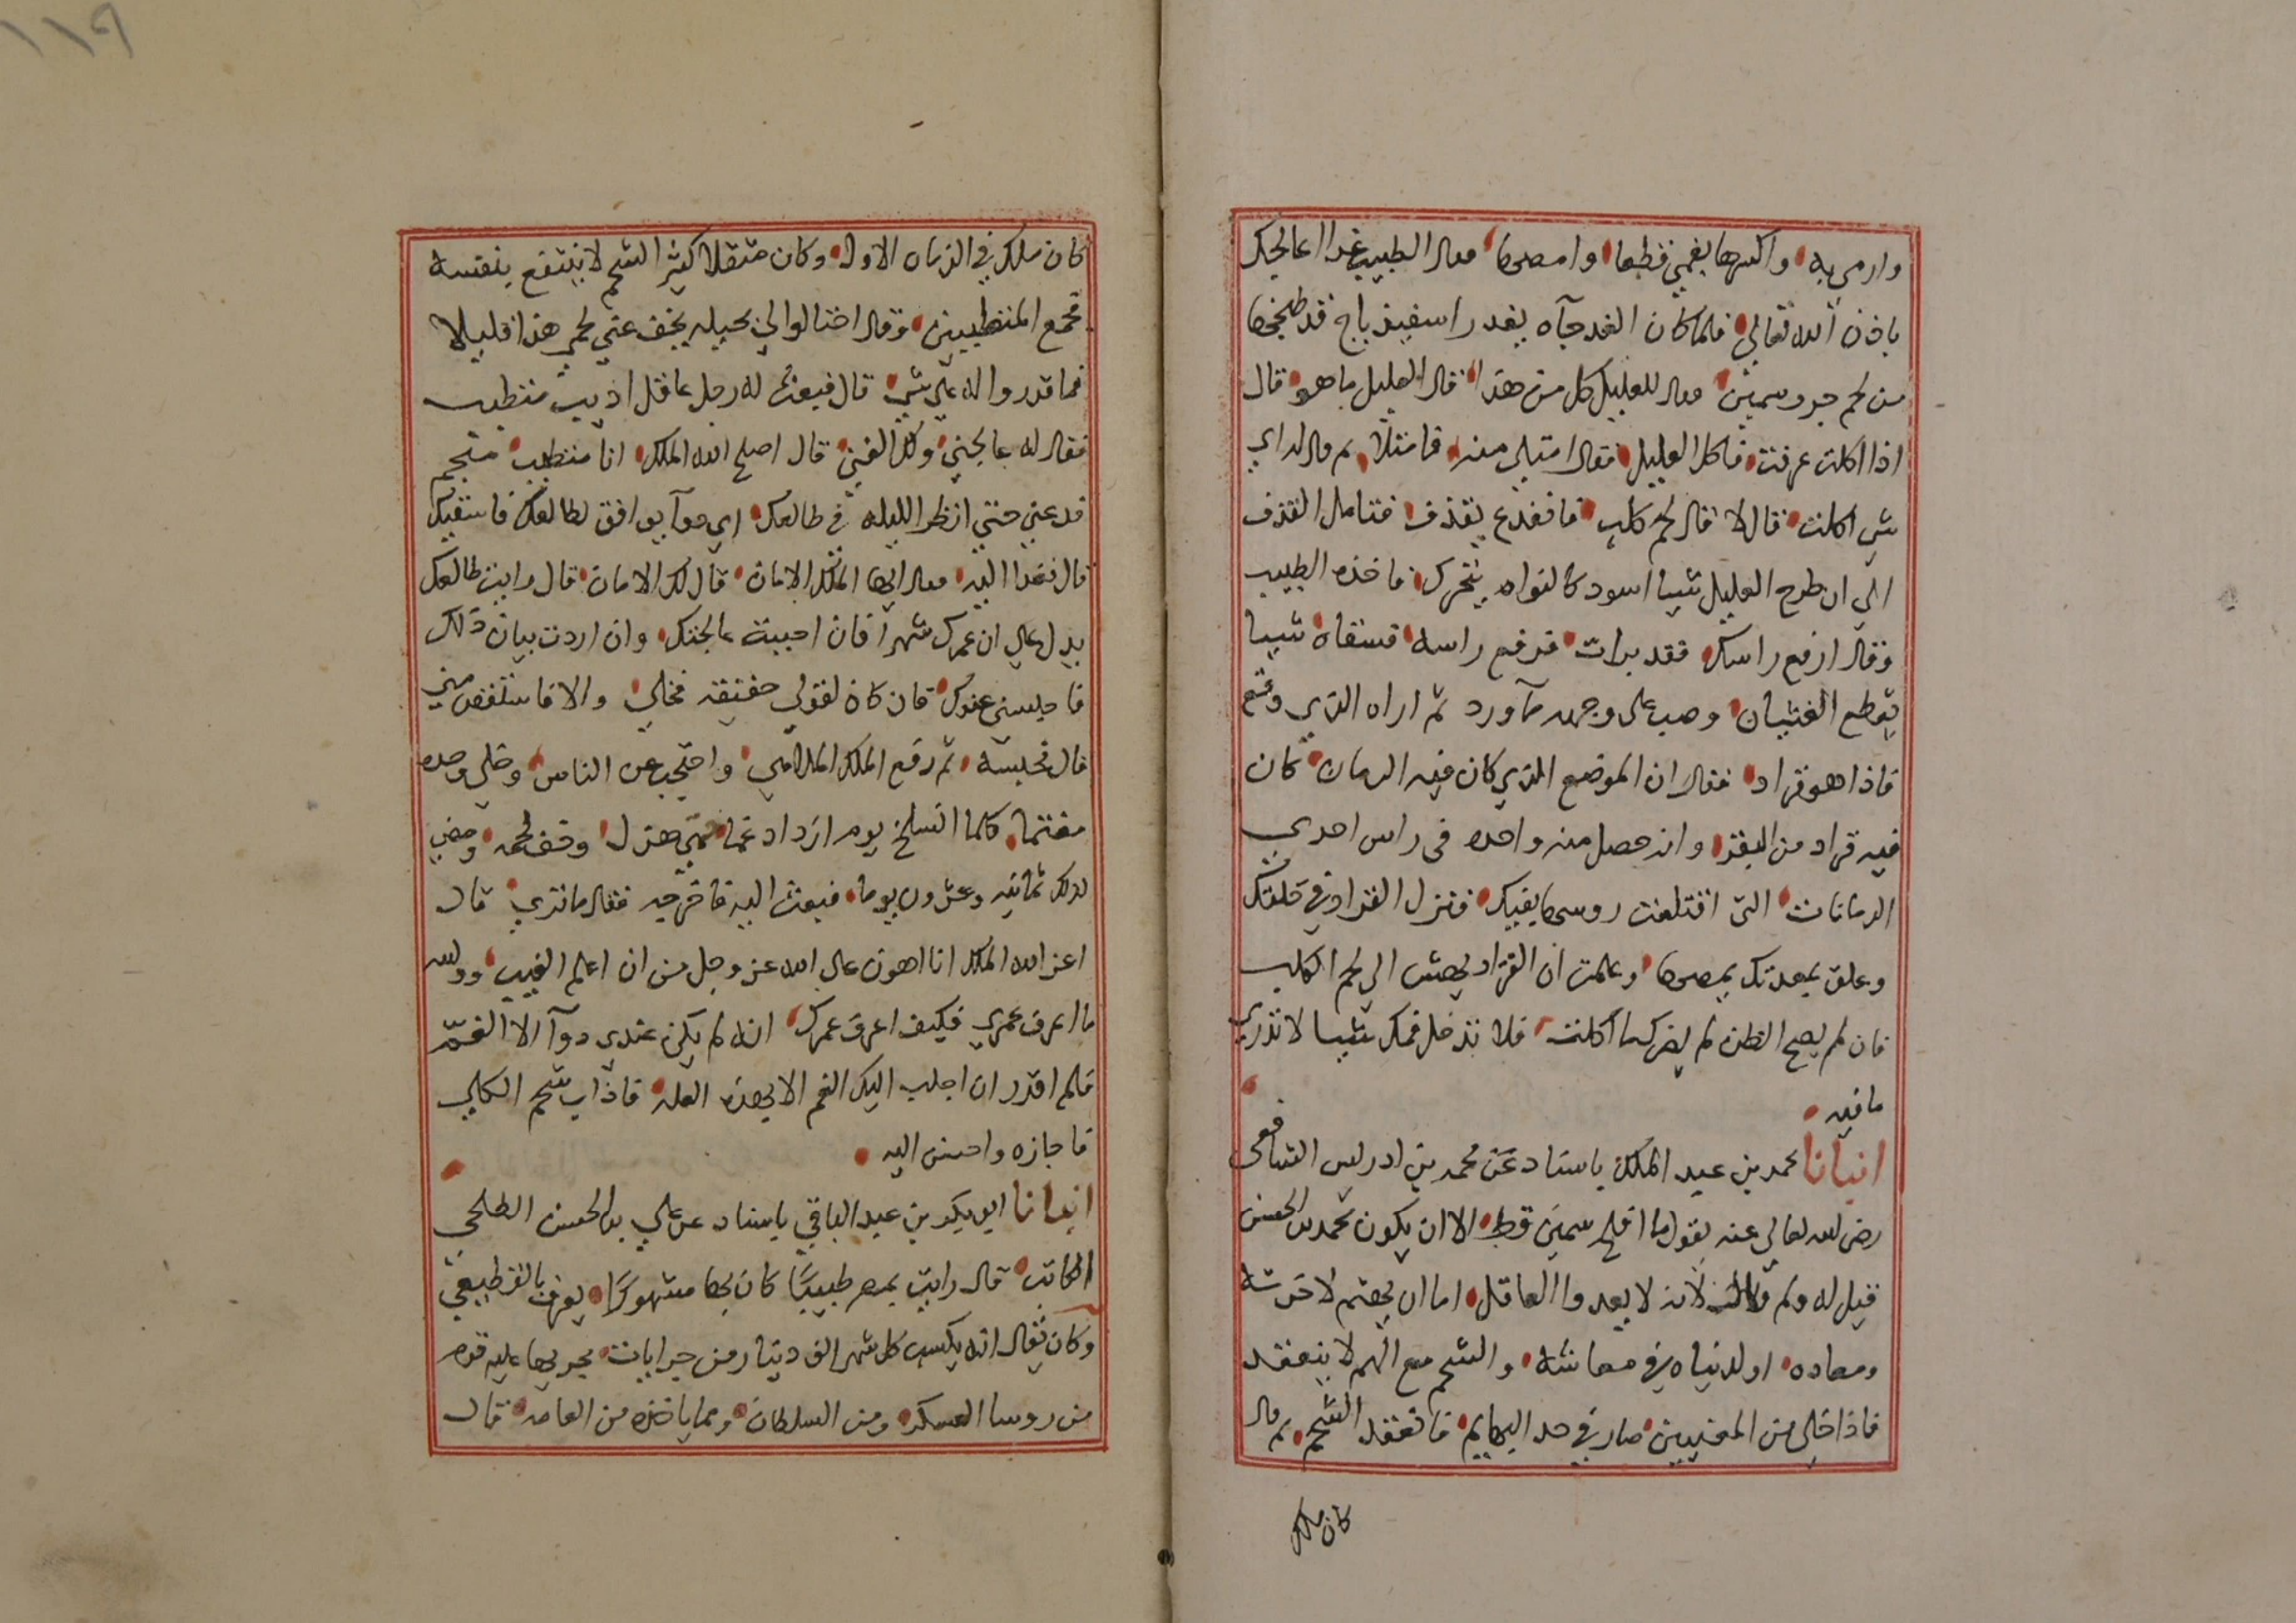 وارمي به واكسرها بفمي فطعا وامصها فقال الطبيب غدا اعالجك
باذن الله تعالى فلما كان الغد جآه بقدر اسفيذباج قد طبخها
من لحم جرو سمين فقال للعليل كل من هذا قال العليل ما هو قال
اذا اكلت عرفت فاكل العليل فقال امتلي منه فامتلا ثم قال له اي
شي اكلت قال لا قال لحم كلب فاندفع يقذف فتامل القذف
الي ان طرح العليل شيا اسود كالنواه يتحرك فاخذه الطبيب
وقال ارفع راسك فقد برات فرفع راسه فسقاه شيبا
يقطع الغثيان وصب على وجهه مآ ورد ثم اراه الذي وقع
فاذا هو قراد فقال ان الموضع الذي كان فيه الرمان كان
فيه قراد من البقر وانه حصل منه واحده في راس احدي
الرمانات التي اقتلعت روسها بفيك فنزل القراد في حلقك
وعلق بمعدتك يمصها وعلمت ان القراد يهش الي لحم الكلب
فان لم يصح الظن لم يضرك ما اكلت فلا تدخل فمك شيبا لا تدري
ما فيه
انبانا محمد بن عبد الملك باسناد عن محمد بن ادريس الشافعي
رضى الله تعالى عنه يقول ما افلح سمين قط الا ان يكون محمد بن الحسن
قيل له ولم قال لانه لا يعدوا العاقل اما ان يهتم لاخرته
ومعاده او لدنياه في معاشه والشحم مع الهم لا ينعقد
فاذا خلى من المعنيين صار في حد البهايم فانعقد الشحم ثم قال
كان ملك
١١٩
كان ملك في الزمان الاول وكان مثقلا كثير الشحم لا ينتفع بنفسه
فجمع المتطببين وقال احتالوا لي بحيله يخف عني لحمي هذا قليلا
فما قدروا له علي شي قال فبعث له رجل عاقل اديب متطبب
فقال له عالجني ولك الغني قال اصلح الله الملك انا متطبب منجم
قدعني حتي انظر الليله في طالعك اي دوآ يوافق لطالعك فاسقيك
قال فغدا اليه فقال ايها الملك الامان قال لك الامان قال رايت طالعك
يدل علي ان عمرك شهرا فان احببت عالجتك وان اردت بيان ذلك
فاحبسني عندك فان كان لقولي حقيقه فخلي والا فاستقص مني
قال فحبسه ثم رفع الملك الملاهي واحتجب عن الناس وخلي وحده
مغتما كلما انسلخ يوم ازداد غما حتي هزل وخف لحمه ومضي
لذلك ثمانيه وعشرون يوما فبعث اليه فاخرجه فقال ما تري قال
اعز الله الملك انا اهون علي الله عز وجل من ان اعلم الغيب والله
ما اعرف عمري فكيف اعرف عمرك انه لم يكن عندي دوآ الا الغم
فلم اقدر ان اجلب اليك الغم الا بهذه العله فاذاب شحم الكلي
فاجازه واحسن اليه
انبانا ابو بكر بن عبد الباقي باسناد عن علي بن الحسن الطلحي
الكاتب قال رايت بمصر طبيبًا كان بها مشهورًا يعرف بالقطيعي
وكان يقال انه يكسب كل شهر الف دينار من جرايات يجريها عليه قوم
من روسا العسكر ومن السلطان ومما ياخذه من العامه قال